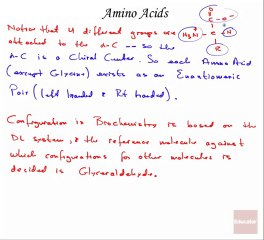 Amino Acids
Notice that 4 different groups are
attached to the α-C -- so the
α-C is a Chiral Center. So each Amino Acid
(except Glycine) exists as an Enantiomeric
Pair (left handed & Rt handed).
Configuration in Biochemistry is based on the
DL system, & the reference molecule against
which configurations for other molecules is
decided is Glyceraldehyde.